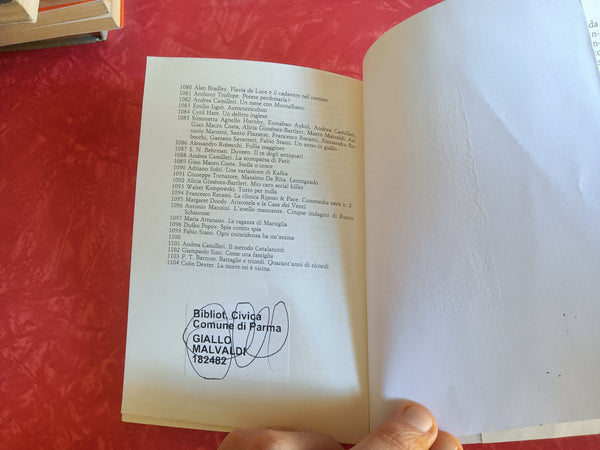 1080 Alan Bradley. Flavia de Luce e il cadavere nel camino
1081 Anthony Trollope. Potete perdonarla?
1082 Andrea Camilleri. Un mese con Montalbano
1083 Emilio Isgrò. Autocurriculum
1084 Cyril Hare. Un delitto inglese
1085 Simonetta Agnello Hornby, Esmahan Aykol, Andrea Camilleri,
Gian Mauro Costa, Alicia Giménez-Bartlett, Marco Malvaldi, An-
tonio Manzini, Santo Piazzese, Francesco Recami, Alessandro Ro-
becchi, Gaetano Savatteri, Fabio Stassi. Un anno in giallo
1086 Alessandro Robecchi. Follia maggiore
1087 S. N. Behrman. Duveen. Il re degli antiquari
1088 Andrea Camilleri. La scomparsa di Patò
1089 Gian Mauro Costa. Stella o croce
1090 Adriano Sofri. Una variazione di Kafka
1091 Giuseppe Tornatore, Massimo De Rita. Leningrado
1092 Alicia Giménez-Bartlett. Mio caro serial killer
1093 Walter Kempowski. Tutto per nulla
1094 Francesco Recami. La clinica Riposo & Pace. Commedia nera n. 2
1095 Margaret Doody. Aristotele e la Casa dei Venti
1096 Antonio Manzini. L'anello mancante. Cinque indagini di Rocco
Schiavone
1097 Maria Attanasio. La ragazza di Marsiglia
1098 Duško Popov. Spia contro spia
1099 Fabio Stassi. Ogni coincidenza ha un'anima
1100
1101 Andrea Camilleri. Il metodo Catalanotti
1102 Giampaolo Simi. Come una famiglia
1103 P. T. Barnum. Battaglie e trionfi. Quarant'anni di ricordi
1104 Colin Dexter. La morte mi è vicina
Bibliot. Civica
Comune di Parma
GIALLO
MALVALDI
182482
da